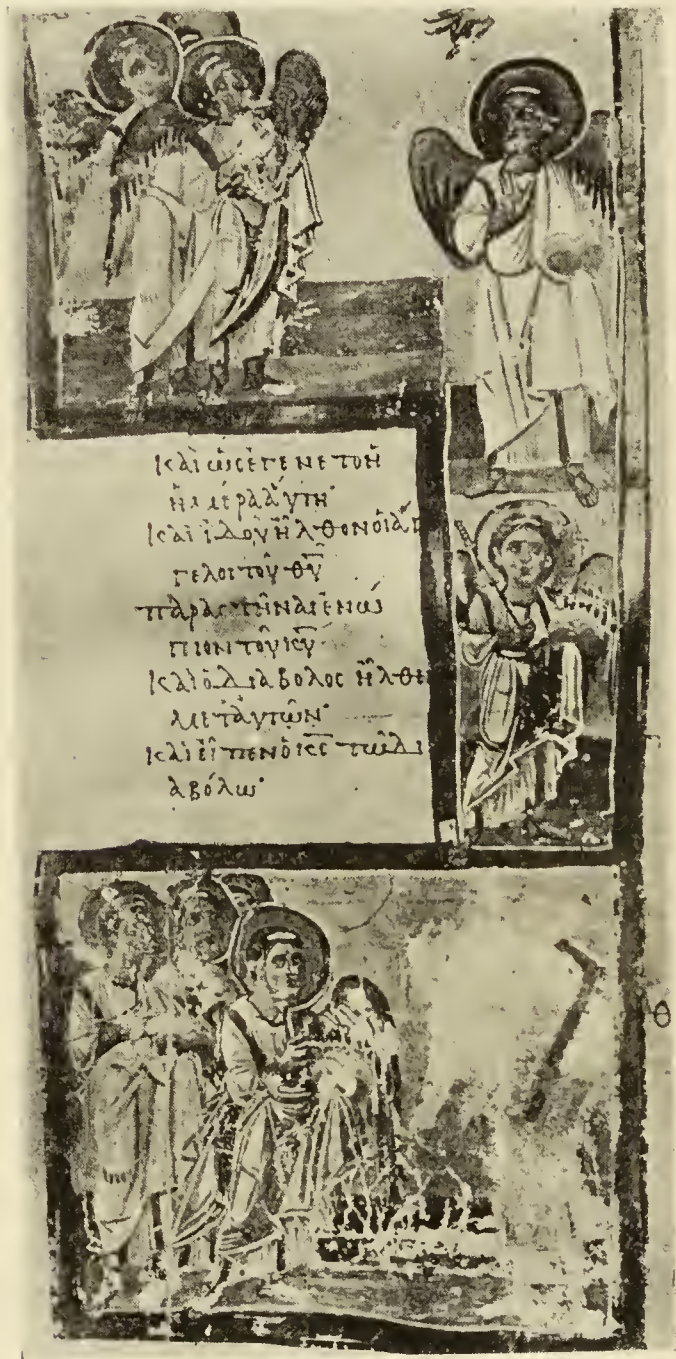 Καὶ ὡς ἐγένετο ἡ
ἡμέρα ἅυτη·
Καὶ ἰδοὺ ἦλθον οἱ ἄγ
γελοι τοῦ θ̅υ̅
παραστῆναι ἐνώ
πιον τοῦ κ̅υ̅·
Καὶ ὁ διάβολος ἦλθε
μετ' ἀυτῶν·
Καὶ εἶπεν ὁ κ̅ς̅ τῶ δι
αβόλω·
θ